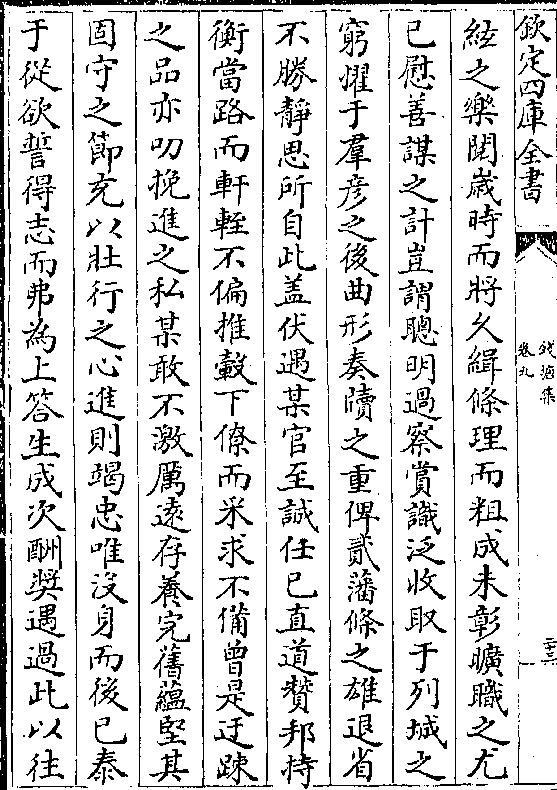 欽定四庫全書
錢塘集
卷九
二十三
絃之樂閱歲時而將久緝條理而粗成未彰曠職之尤
已慰善謀之計豈謂聰明過察賞識泛收取于列城之
窮擢于羣彥之後曲形奏牘之重俾貳藩條之雄退省
不勝靜思所自此盖伏遇某官至誠任已直道贊邦持
衡當路而軒輊不偏推轂下僚而采求不備曾是迂踈
之品亦叨挽進之私某敢不激厲遠存養完舊蘊堅其
固守之節充以壯行之心進則竭忠唯沒身而後已泰
于從欲誓得志而弗為上答生成次酬奬遇過此以往